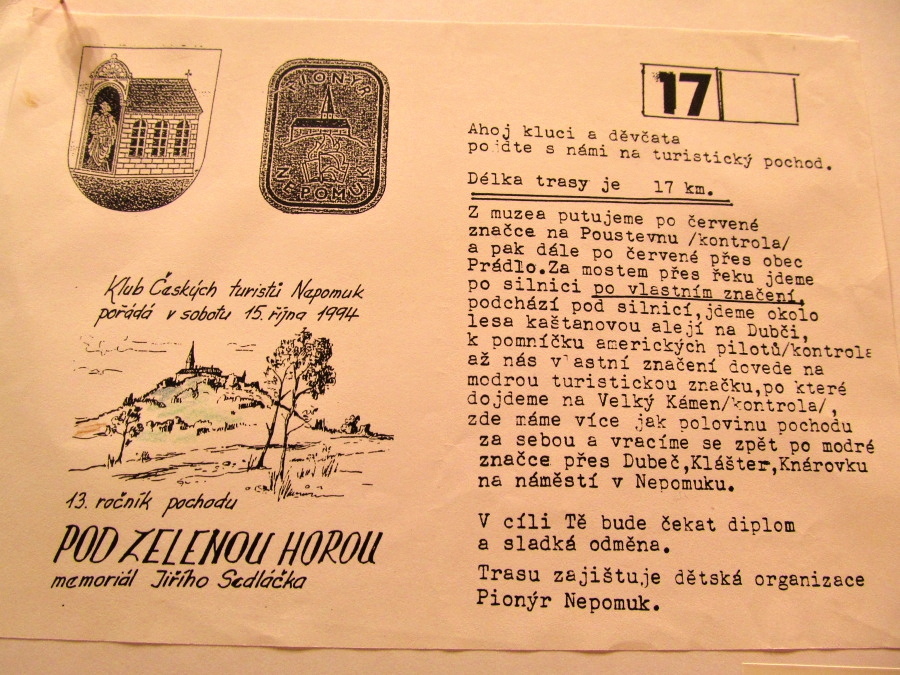 PIONÝR
NEPOMUK
Klub Českých turistů Nepomuk
pořádá v sobotu 15. října 1994
13. ročník pochodu
POD ZELENOU HOROU
memoriál Jiřího Sedláčka
17
Ahoj kluci a děvčata
pojdte s námi na turistický pochod.
Délka trasy je 17 km.
Z muzea putujeme po červené
značce na Poustevnu /kontrola/
a pak dále po červené přes obec
Prádlo.Za mostem přes řeku jdeme
po silnici po vlastním značení,
podchází pod silnicí,jdeme okolo
lesa kaštanovou alejí na Dubči,
k pomníčku amerických pilotů/kontrola
až nás vlastní značení dovede na
modrou turistickou značku,po které
dojdeme na Velký Kámen/kontrola/,
zde máme více jak polovinu pochodu
za sebou a vracíme se zpět po modré
značce přes Dubeč,Klášter,Knárovku
na náměstí v Nepomuku.
V cíli Tě bude čekat diplom
a sladká odměna.
Trasu zajištuje dětská organizace
Pionýr Nepomuk.